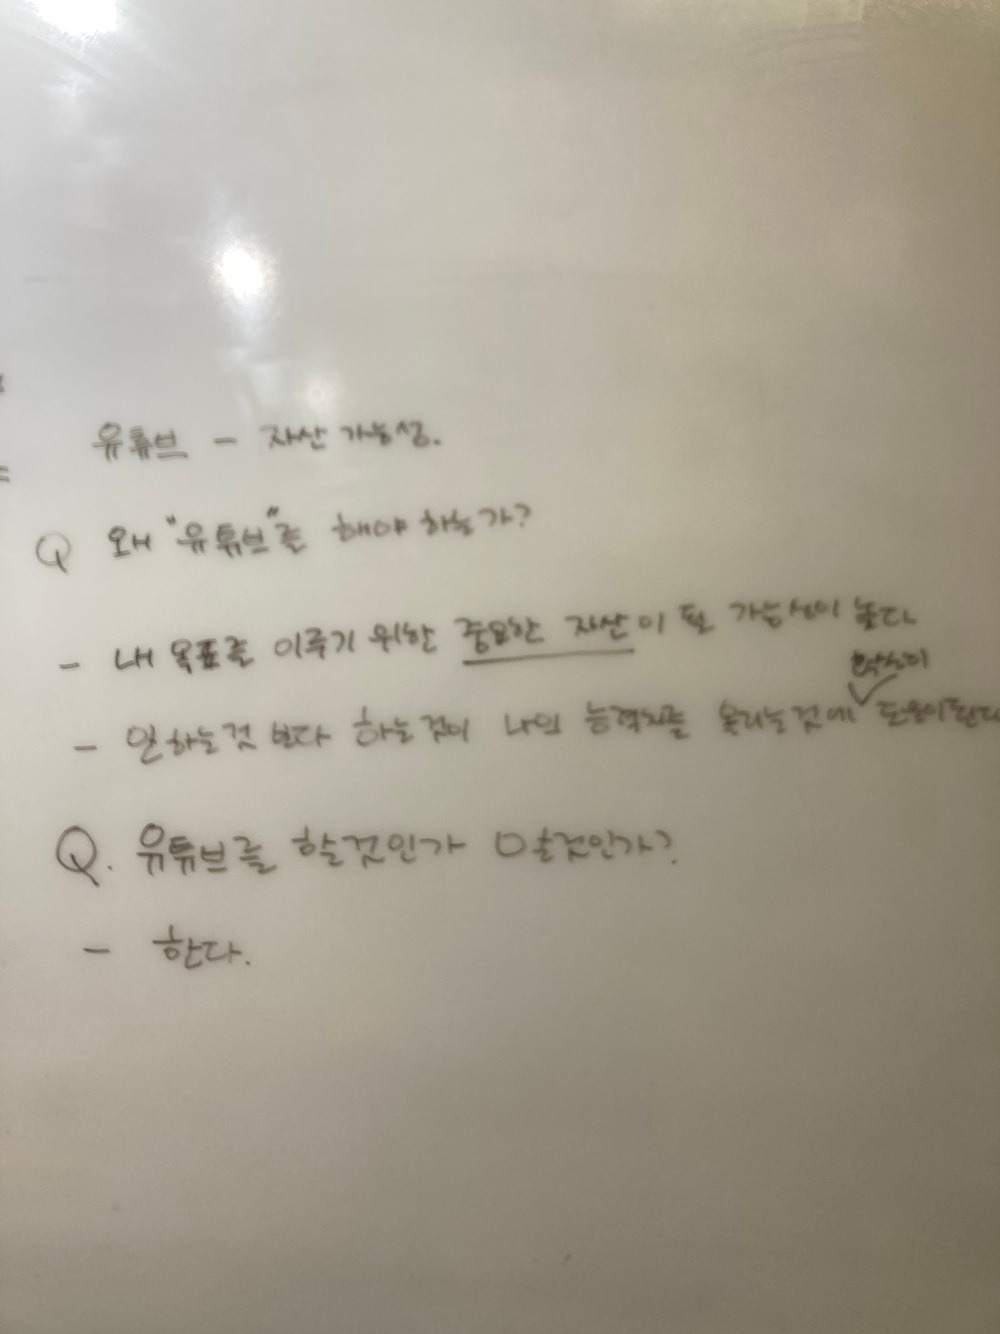 유튜브 - 자산 가능성.
Q 왜 "유튜브"를 해야 하는가?
- 내 목표를 이루기 위한 중요한 자산이 될 가능성이 높다
확실히
- 안하는것 보다 하는것이 나의 능력치를 올리는것에 도움이된다
Q. 유튜브를 할것인가 말것인가?
- 한다.